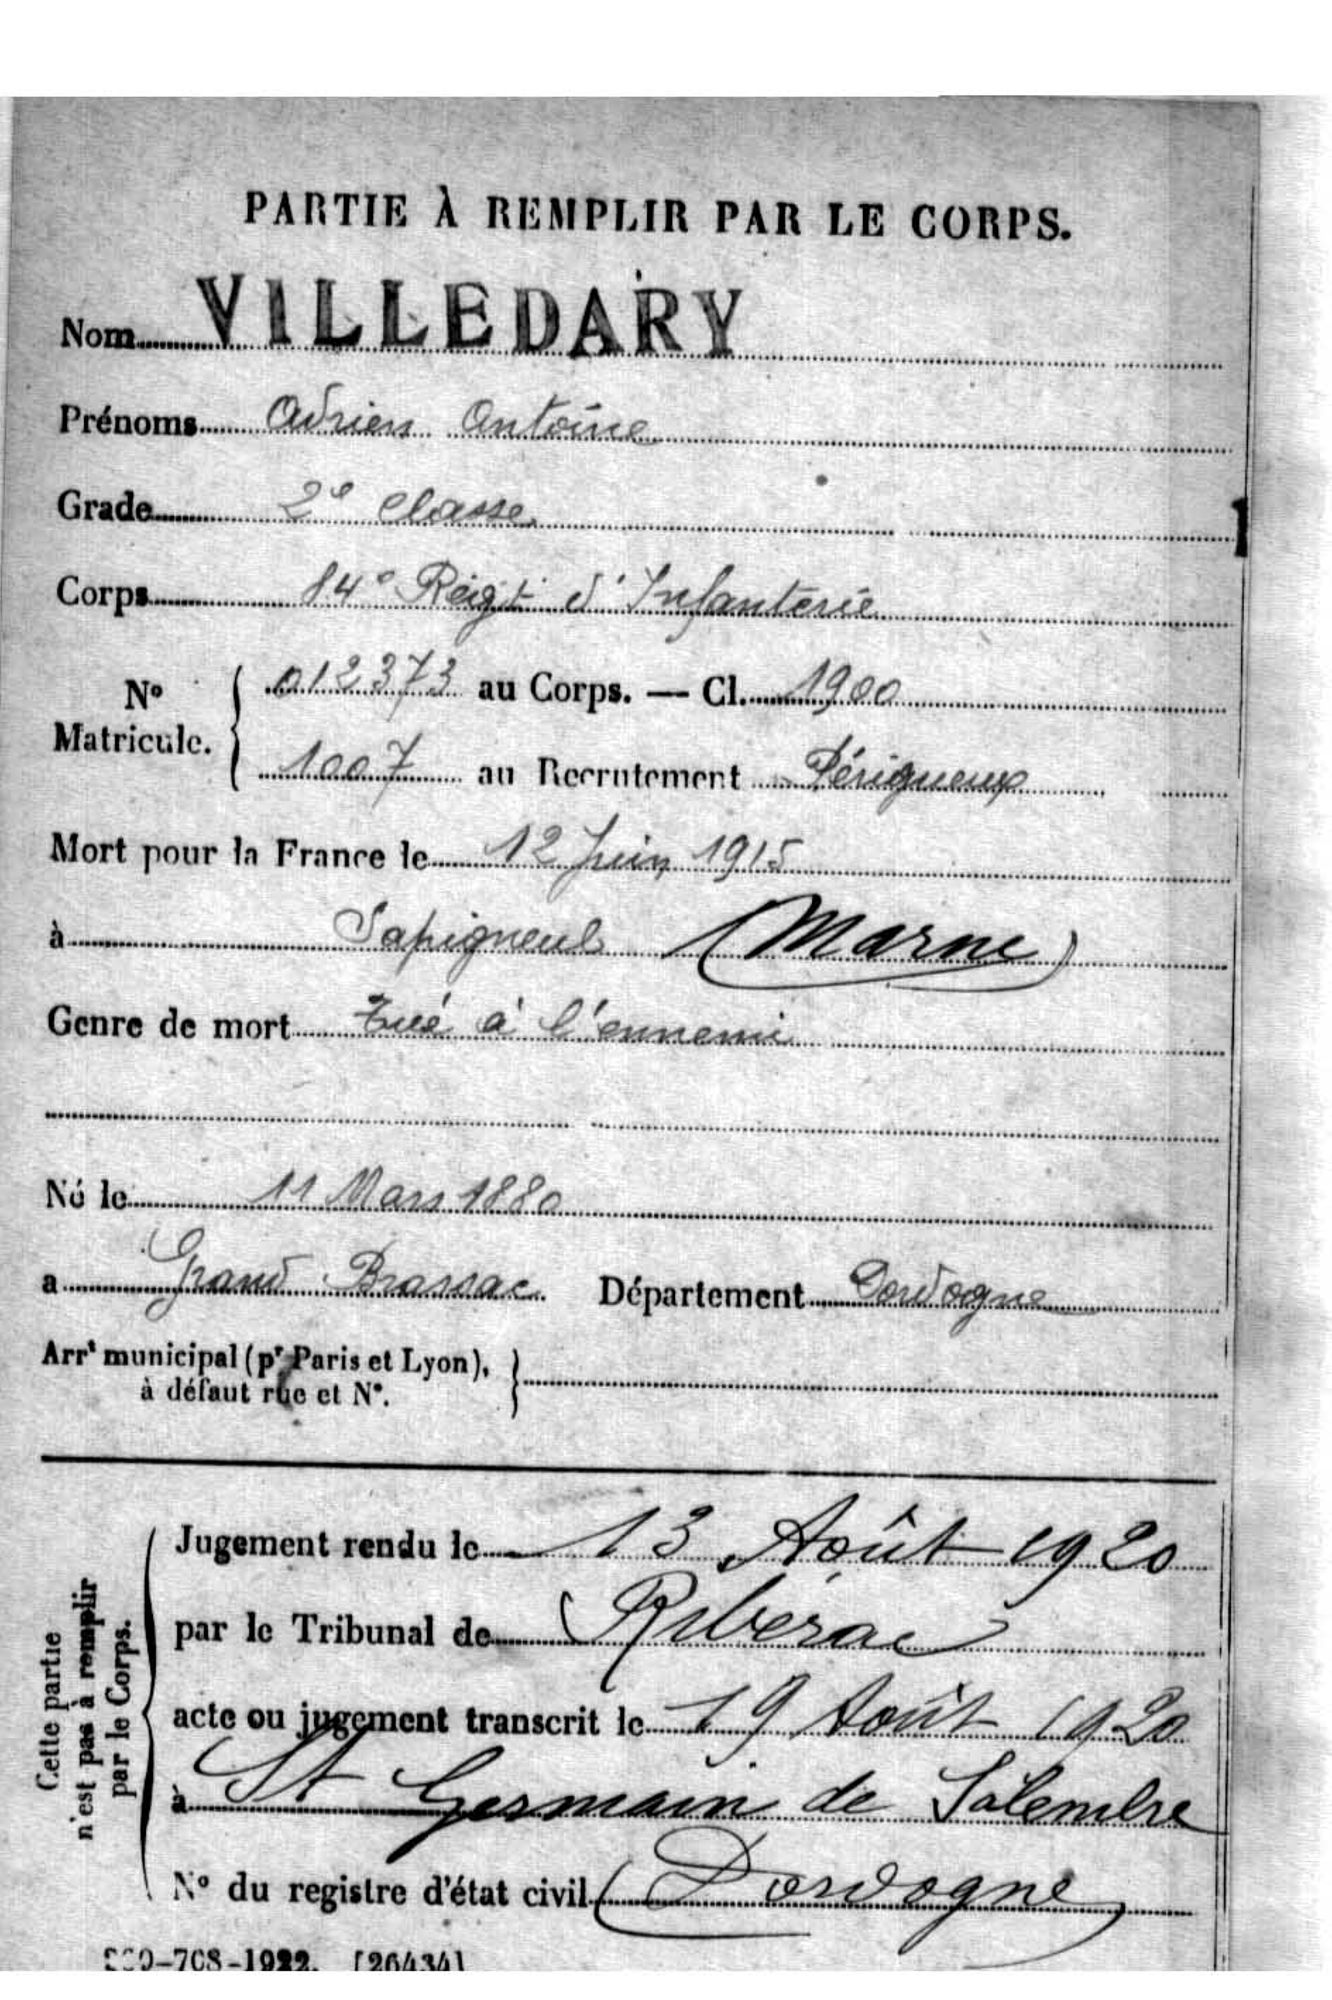 PARTIE À REMPLIR PAR LE CORPS.
Nom VILLEDARY
Prénoms Adrien Antoine
Grade 2e Classe
Corps 84e Régt d'Infanterie
No Matricule. { 012373 au Corps. — Cl. 1900
1007 au Recrutement Périgueux
Mort pour la France le 12 Juin 1915
à Sapigneul (Marne)
Genre de mort Tué à l'ennemi
Né le 11 Mars 1880
à Grand Brassac Département Dordogne
Arrt municipal (pr Paris et Lyon), }
à défaut rue et No.
Cette partie
n'est pas à remplir
par le Corps.
Jugement rendu le 13 Août 1920
par le Tribunal de Ribérac
acte ou jugement transcrit le 19 Août 1920
à St Germain de Salembre
No du registre d'état civil (Dordogne)
-708-1922. [26434]